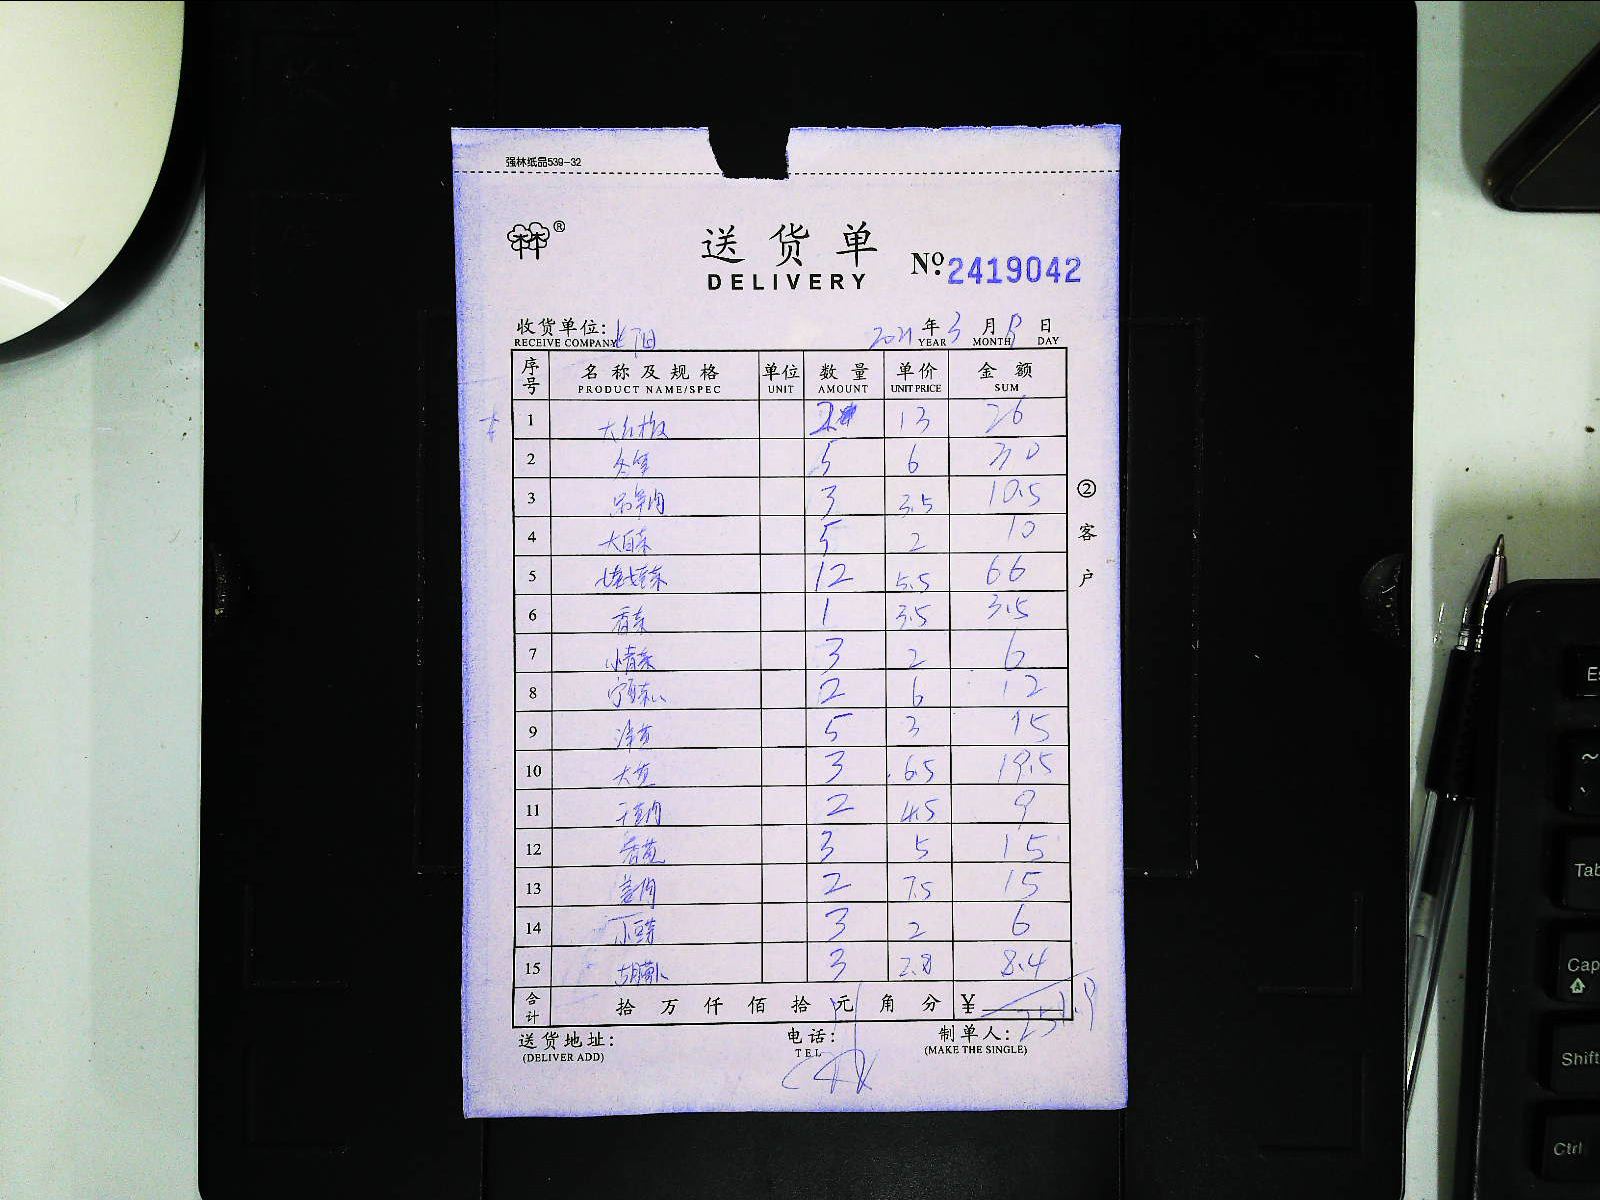 强林纸品539-32
®
送货单
DELIVERY
№ 2419042
收货单位: 2021年3月 日
RECEIVE COMPANY YEAR MONTH DAY
序号 名称及规格 单位 数量 单价 金额
PRODUCT NAME/SPEC UNIT AMOUNT UNIT PRICE SUM
1 2 13 26
2 5 6 30
3 3 3.5 10.5
4 大白菜 5 2 10
5 娃娃菜 12 5.5 66
6 香菜 1 3.5 3.5
7 小青菜 3 2 6
8 2 6 12
9 5 3 15
10 大葱 3 6.5 19.5
11 2 4.5 9
12 香葱 3 5 15
13 2 7.5 15
14 3 2 6
15 胡萝卜 3 2.8 8.4
合计 拾 万 仟 佰 拾 元 角 分 ¥ 251.9
② 客户
送货地址: 电话: 制单人:
(DELIVER ADD) TEL (MAKE THE SINGLE)
Es
~
Tab
Cap
Shift
Ctrl